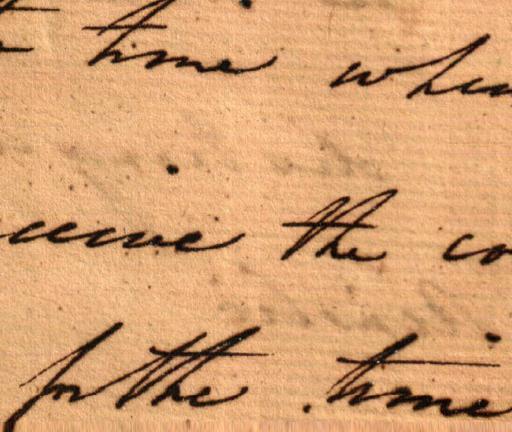 time when
receive the co
for the time